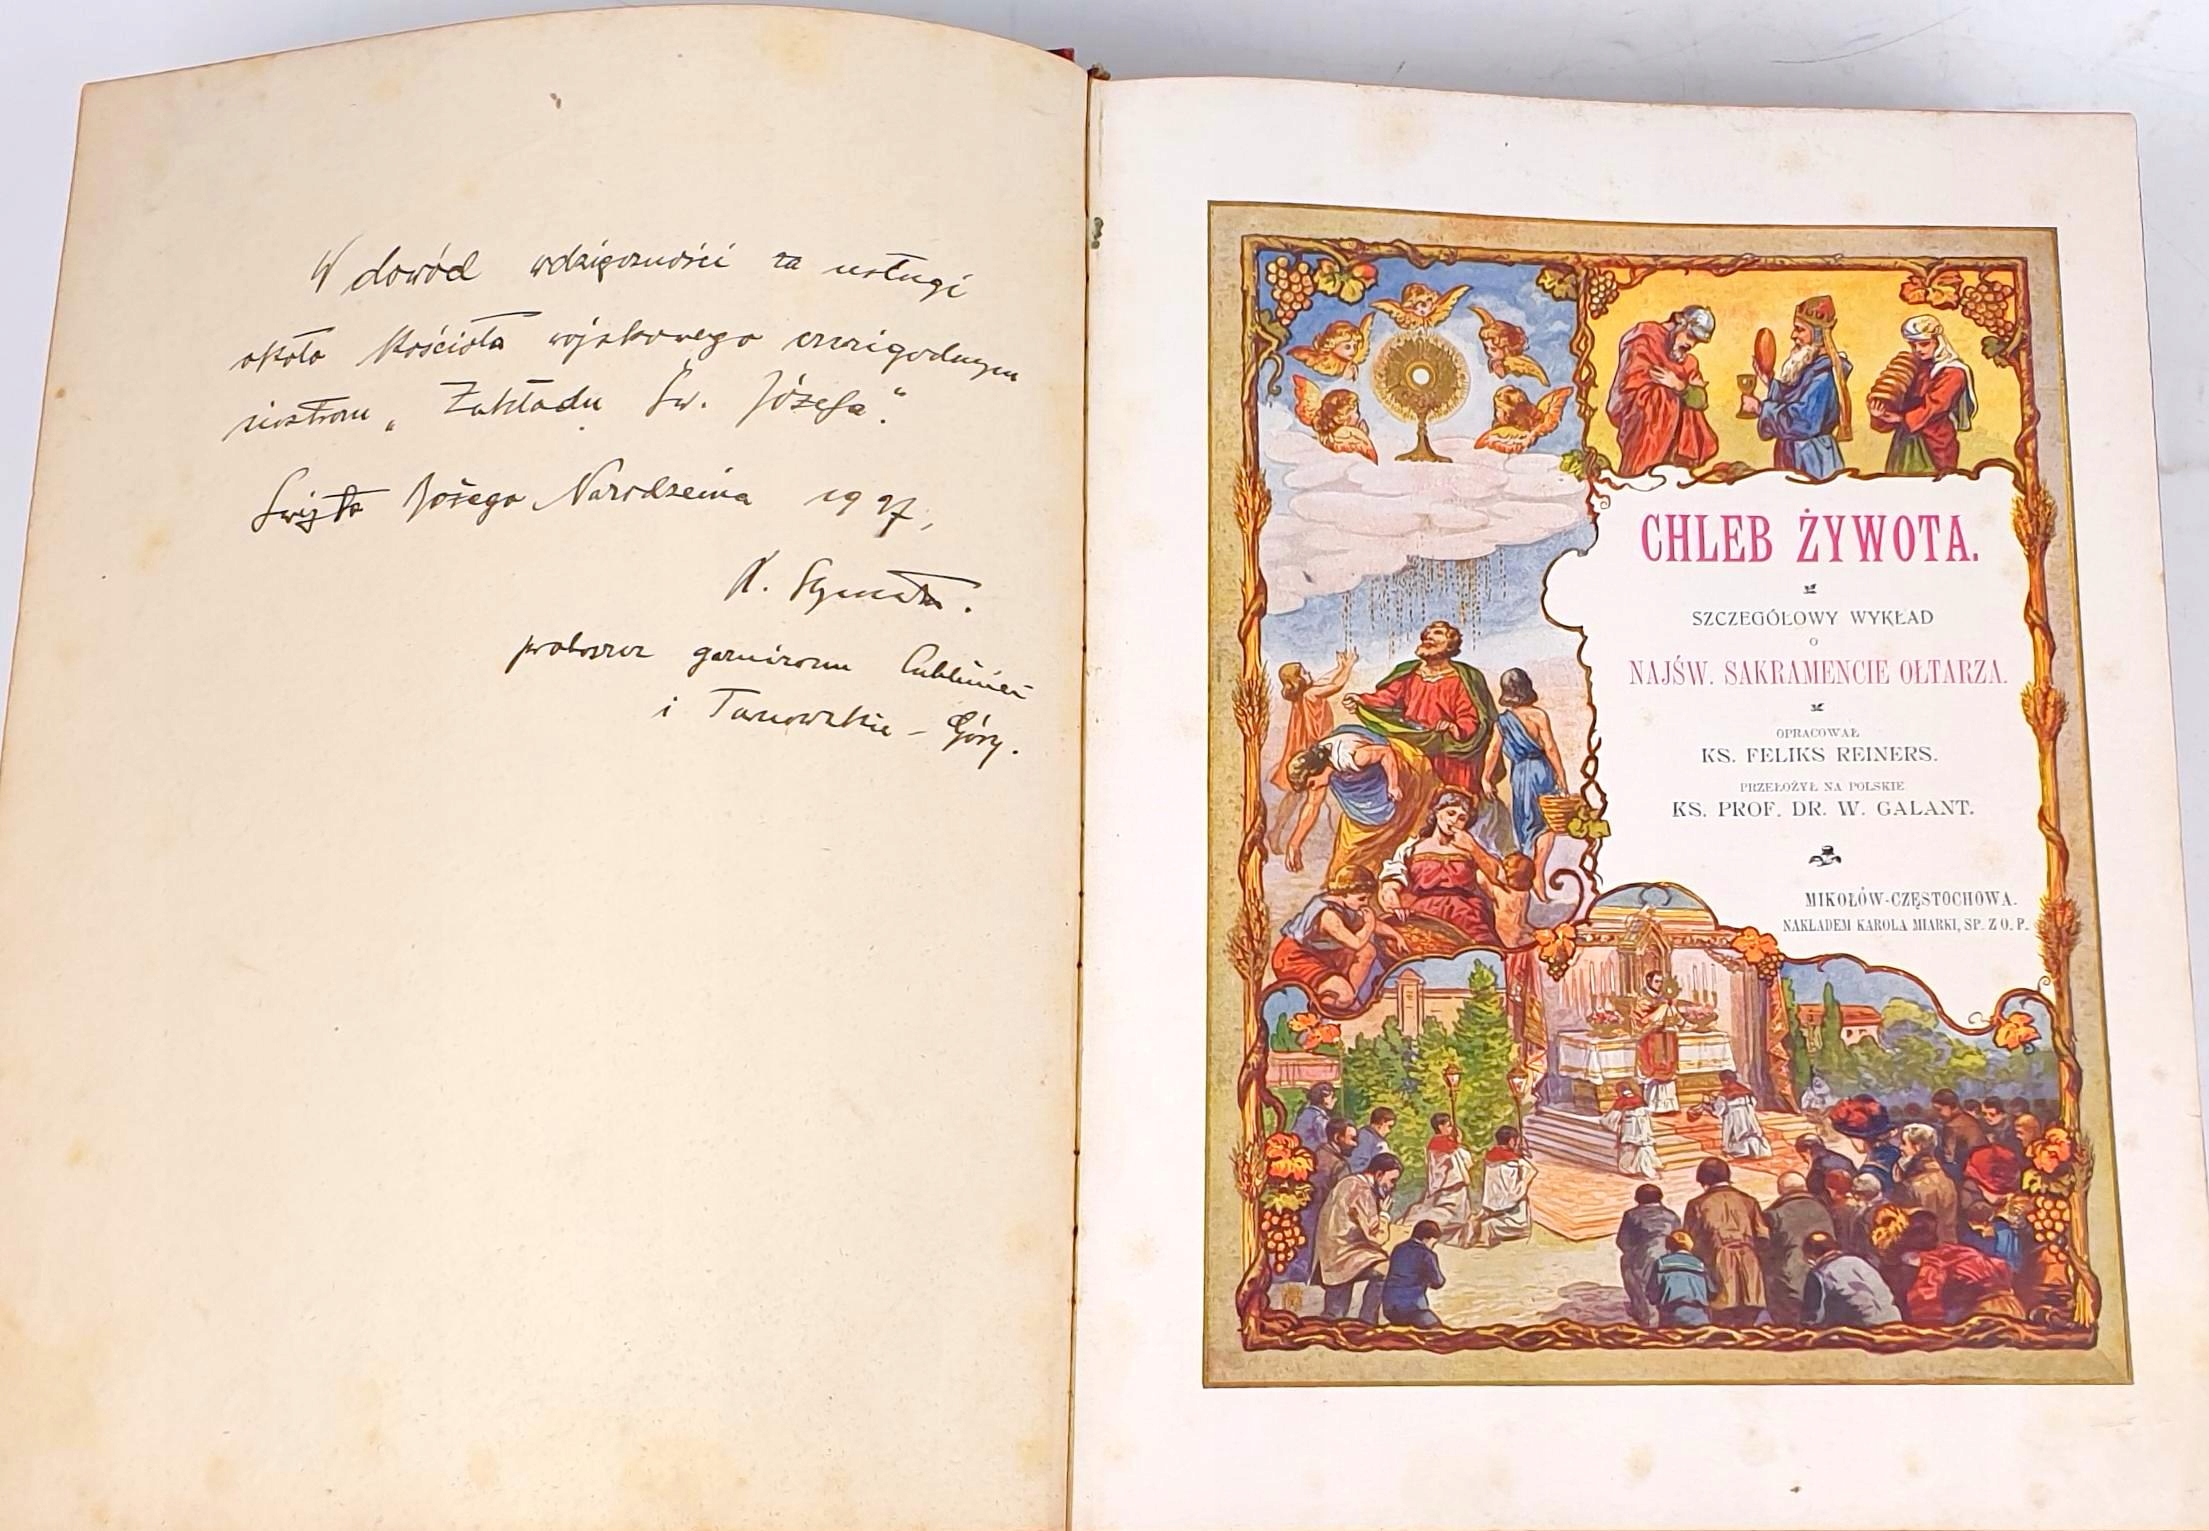 W dowód wdzięczności za usługi
około Kościoła wojskowego czcigodnym
siostrom „Zakładu Św. Józefa".
Święta Bożego Narodzenia 1927,
proboszcz garnizonu Lubliniec
i Tarnowskie-Góry.
CHLEB ŻYWOTA.
SZCZEGÓŁOWY WYKŁAD
O
NAJŚW. SAKRAMENCIE OŁTARZA.
OPRACOWAŁ
KS. FELIKS REINERS.
PRZEŁOŻYŁ NA POLSKIE
KS. PROF. DR. W. GALANT.
MIKOŁÓW-CZĘSTOCHOWA.
NAKŁADEM KAROLA MIARKI, SP. Z O. P.